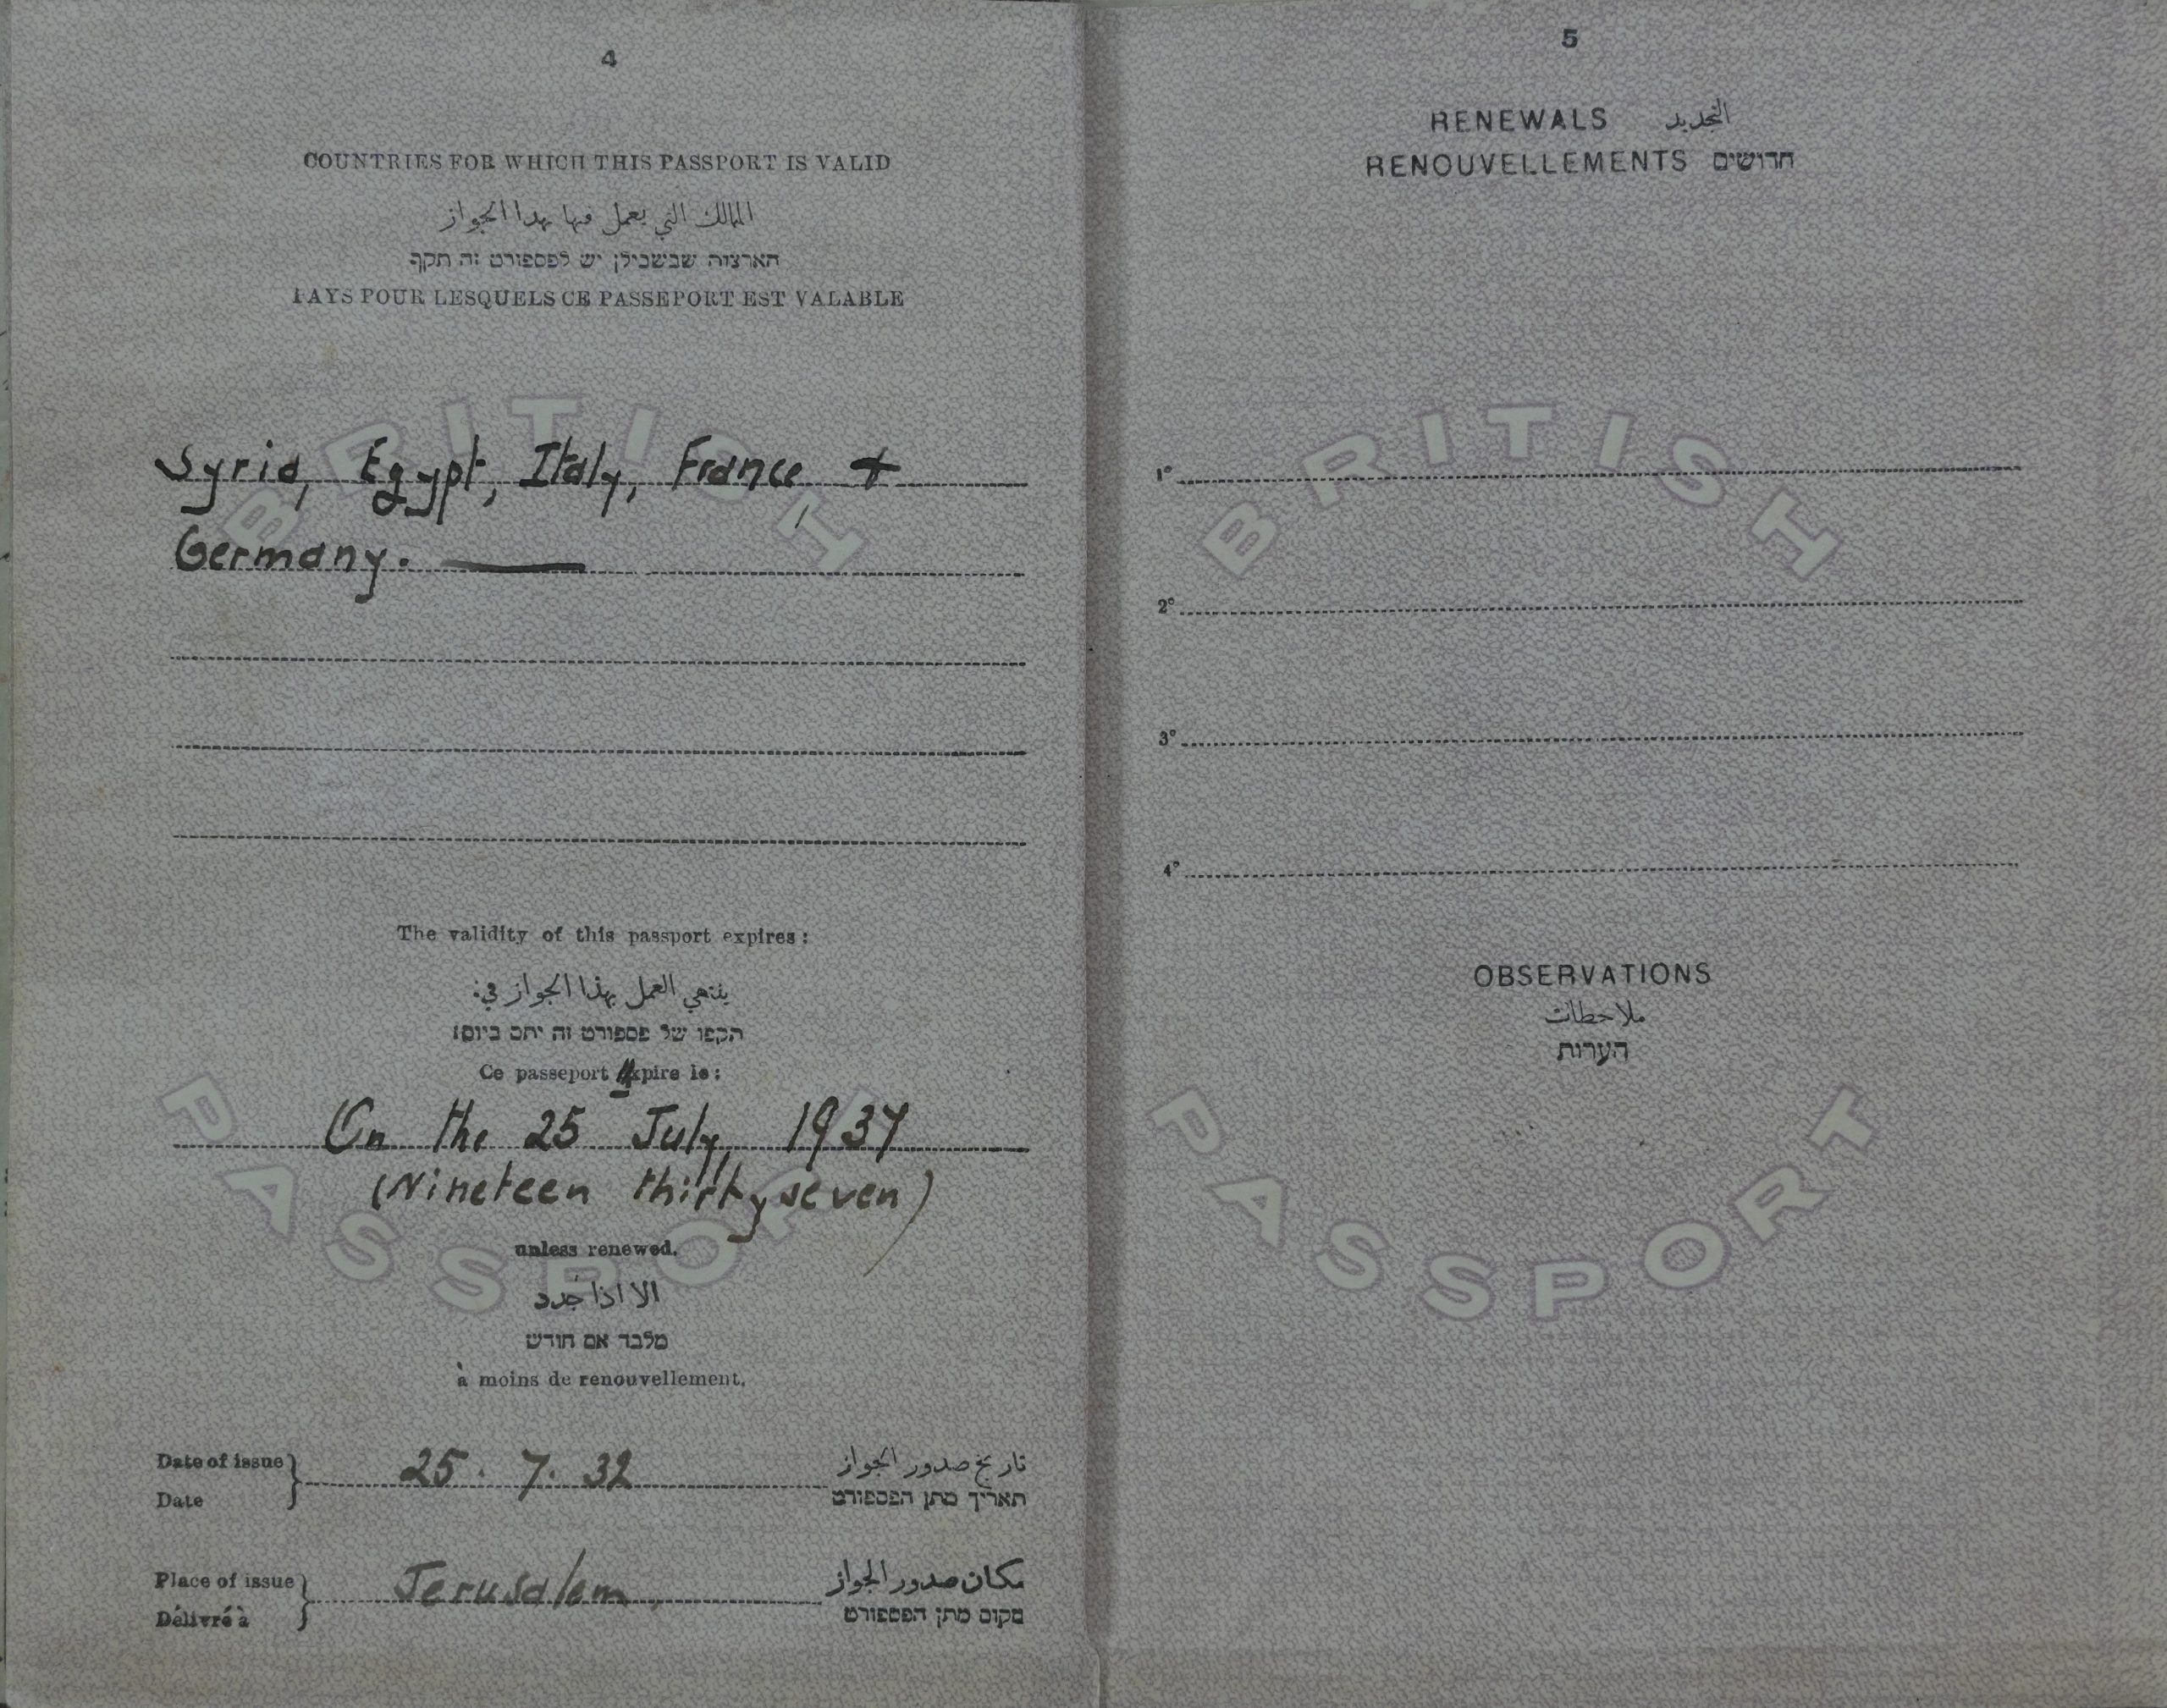 4
COUNTRIES FOR WHICH THIS PASSPORT IS VALID
الممالك التي يعمل فيها بهذا الجواز
הארצות שבשבילן יש לפספורט זה תקף
PAYS POUR LESQUELS CE PASSEPORT EST VALABLE
BRITISH
Syria, Egypt, Italy, France +
Germany.
The validity of this passport expires:
ينتهي العمل بهذا الجواز في:
תקפו של פספורט זה יתם ביום:
Ce passeport expire le:
On the 25 July, 1937
(Nineteen thirty seven)
PASSPORT
unless renewed.
الا اذا جُدد
מלבד אם חודש
à moins de renouvellement.
Date of issue 25. 7. 32 تاريخ صدور الجواز
Date תאריך מתן הפספורט
Place of issue Jerusalem, مكان صدور الجواز
Délivré à מקום מתן הפספורט
5
RENEWALS التجديد
RENOUVELLEMENTS חדושים
BRITISH
1°
2°
3°
4°
OBSERVATIONS
ملاحظات
הערות
PASSPORT